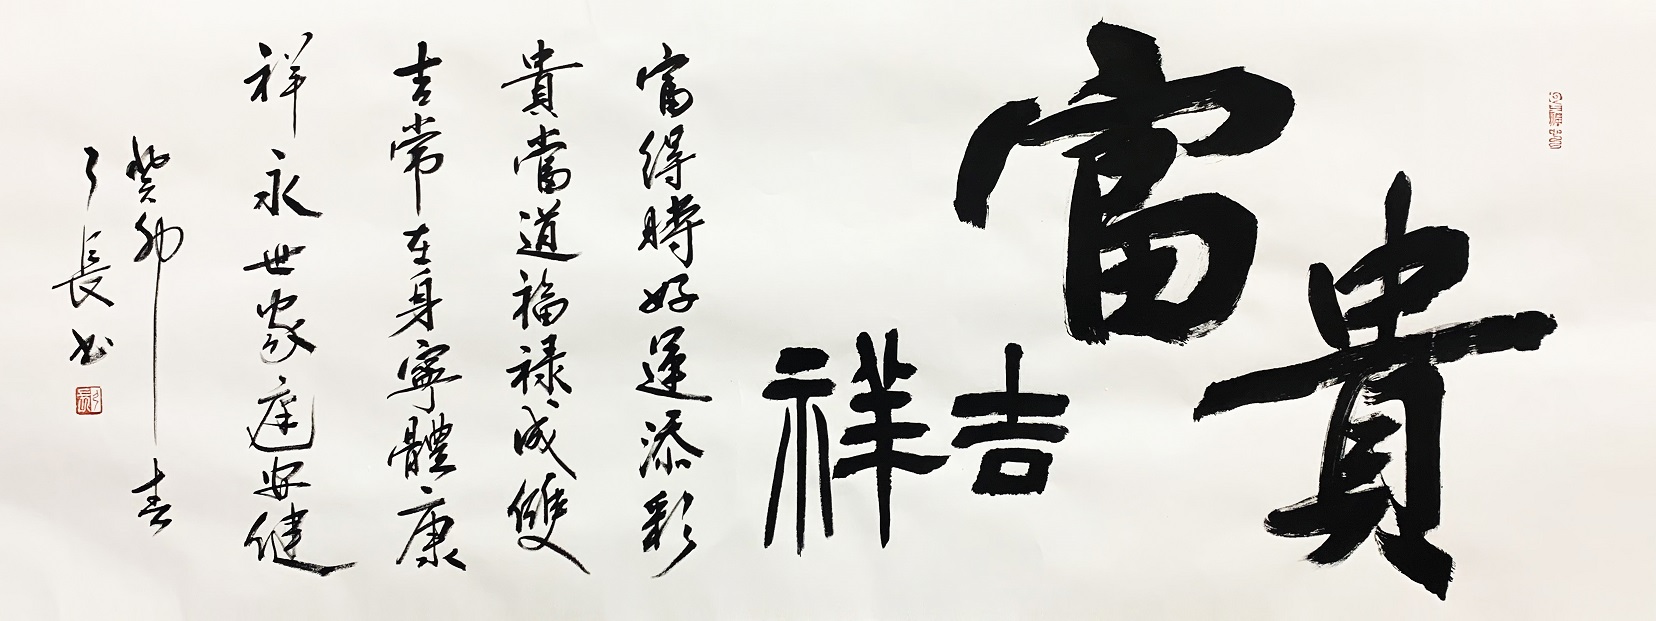 富貴
吉祥
富得時好運添彩
貴當道福禄成雙
吉常在身寧體康
祥永世家庭安健
癸卯春
了長书